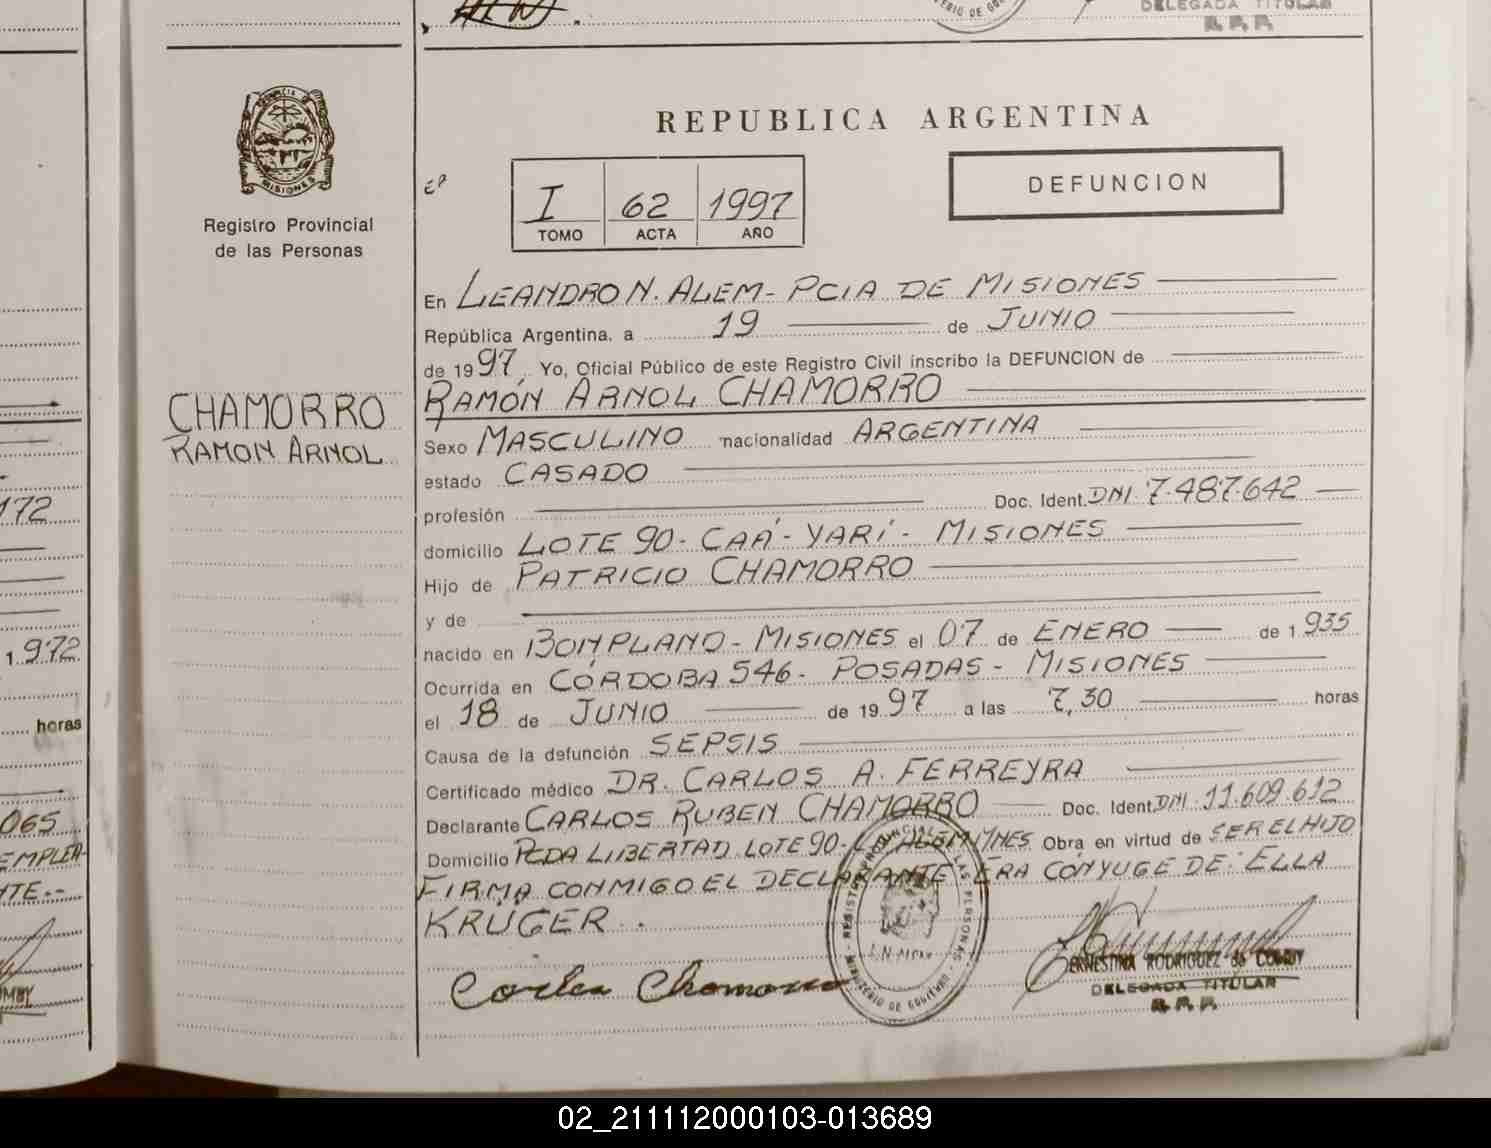 DELEGADA TITULAR
R. P. P.
PROVINCIA DE
MISIONES
Registro Provincial
de las Personas
CHAMORRO
RAMON ARNOL
REPUBLICA ARGENTINA
I 62 1997
TOMO ACTA AÑO
DEFUNCION
En LEANDRO N. ALEM - PCIA DE MISIONES
República Argentina, a 19 de JUNIO
de 1997, Yo, Oficial Público de este Registro Civil inscribo la DEFUNCION de
RAMÓN ARNOL CHAMORRO
Sexo MASCULINO nacionalidad ARGENTINA
estado CASADO
profesión Doc. Ident. DNI 7.487.642
domicilio LOTE 90 - CAÁ - YARÍ - MISIONES
Hijo de PATRICIO CHAMORRO
y de
nacido en BONPLAND - MISIONES el 07 de ENERO de 1.935
Ocurrida en CÓRDOBA 546 - POSADAS - MISIONES
el 18 de JUNIO de 1997 a las 7,30 horas
Causa de la defunción SEPSIS
Certificado médico DR. CARLOS A. FERREYRA
Declarante CARLOS RUBEN CHAMORRO Doc. Ident. DNI 11.609.612
Domicilio PCDA LIBERTAD LOTE 90 - ALEM MNES Obra en virtud de SER EL HIJO
FIRMA CONMIGO EL DECLARANTE ERA CÓNYUGE DE: ELLA
KRÜGER.
Carlos Chamorro
ERNESTINA RODRIGUEZ de
DELEGADA TITULAR
R. P. P.
172
1.972
horas
065
EMPLEA-
NTE.--
02_211112000103-013689